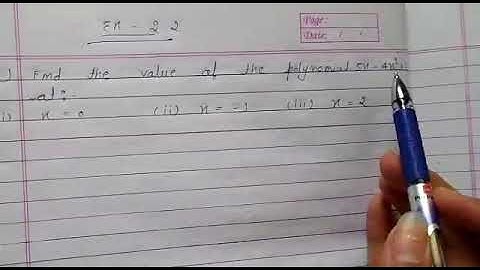 EX - 2 2
Page:
Date: / /
Find the value of the polynomial 5x - 4x²
at:-
(i) x = 0 (ii) x = -1 (iii) x = 2